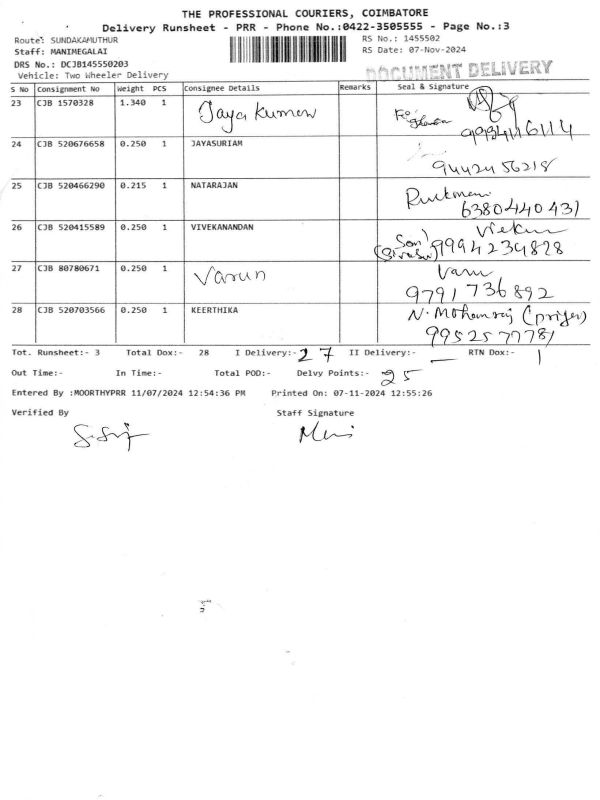 THE PROFESSIONAL COURIERS, COIMBATORE
Delivery Runsheet - PRR - Phone No.:0422-3505555 - Page No.:3
Route: SUNDAKAMUTHUR RS No.: 1455502
Staff: MANIMEGALAI RS Date: 07-Nov-2024
DRS No.: DCJB145550203
Vehicle: Two Wheeler Delivery DOCUMENT DELIVERY
S No Consignment No Weight PCS Consignee Details Remarks Seal & Signature
23 CJB 1570328 1.340 1 Jaya Kumar
24 CJB 520676658 0.250 1 JAYASURIAM 9442456218
25 CJB 520466290 0.215 1 NATARAJAN
6380440431
26 CJB 520415589 0.250 1 VIVEKANANDAN
Son 9994234828
27 CJB 80780671 0.250 1 Varun Varu
9791736892
28 CJB 520703566 0.250 1 KEERTHIKA N. Mohanraj
9952577781
Tot. Runsheet:- 3 Total Dox:- 28 I Delivery:- 27 II Delivery:- — RTN Dox:- 1
Out Time:- In Time:- Total POD:- Delvy Points:- 25
Entered By :MOORTHYPRR 11/07/2024 12:54:36 PM Printed On: 07-11-2024 12:55:26
Verified By Staff Signature
Mani